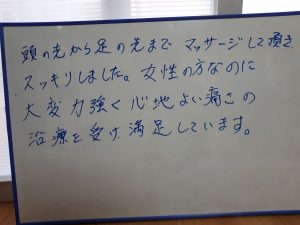 頭の先から足の先までマッサージして頂き
スッキリしました。女性の方なのに
大変力強く心地よい痛さの
治療を受け、満足しています。